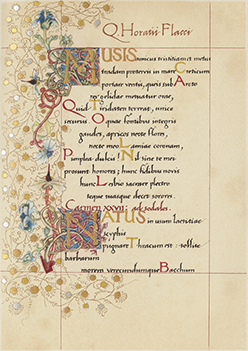 Q. Horatii Flacci
MUSIS amicus tristitiam et metus
tradam protervis in mare Creticum
portare ventis, quis sub Arcto
rex gelidae metuatur orae,
Quid Tiridaten terreat, unice
securus. O quae fontibus integris
gaudes, apricos necte flores,
necte meo Lamiae coronam,
Pimplea dulcis! Nil sine te mei
prosunt honores; hunc fidibus novis
hunc Lesbio sacrare plectro
teque tuasque decet sorores.
Carmen xxvii: ad sodales.
NATUS in usum laetitiae
scyphis
pugnare Thracum est: tollite
barbarum
morem verecundumque Bacchum